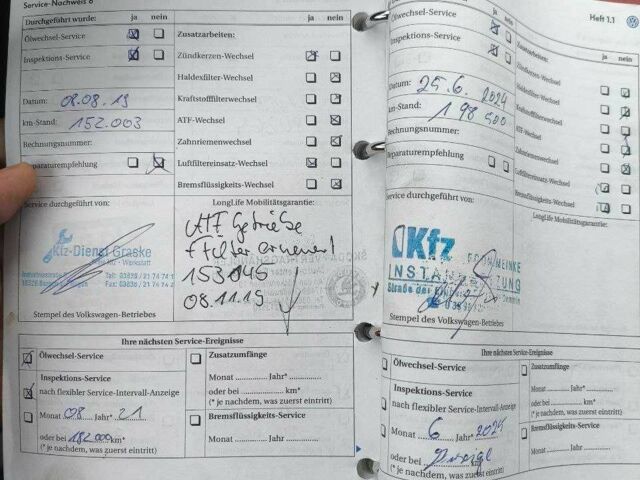 Service-Nachweis 6
Durchgeführt wurde: ja nein
Ölwechsel-Service
Inspektions-Service
Datum: 08.08.19
km-Stand: 152.003
Rechnungsnummer:
Reparaturempfehlung
Zusatzarbeiten: ja nein
Zündkerzen-Wechsel
Haldexfilter-Wechsel
Kraftstofffilterwechsel
ATF-Wechsel
Zahnriemenwechsel
Luftfiltereinsatz-Wechsel
Bremsflüssigkeits-Wechsel
Service durchgeführt von:
Kfz-Dienst Graske
Stempel des Volkswagen-Betriebes
LongLife Mobilitätsgarantie:
ATF Getriebe
+ Filter erneuert
153045
08.11.19
Ihre nächsten Service-Ereignisse
Ölwechsel-Service
Inspektions-Service
nach flexibler Service-Intervall-Anzeige
Monat 08 Jahr* 21
oder bei 182000 km*
(* je nachdem, was zuerst eintritt)
Zusatzumfänge
Monat Jahr*
oder bei km*
(* je nachdem, was zuerst eintritt)
Bremsflüssigkeits-Service
Monat Jahr
Heft 1.1
ja nein
Ölwechsel-Service
Inspektions-Service
Datum: 25.6. 2024
km-Stand: 198 500
Rechnungsnummer:
Reparaturempfehlung
Zusatzarbeiten: ja nein
Zündkerzen-Wechsel
Haldexfilter-Wechsel
Kraftstofffilterwechsel
ATF-Wechsel
Zahnriemenwechsel
Luftfiltereinsatz-Wechsel
Bremsflüssigkeits-Wechsel
Service durchgeführt von:
Kfz
Stempel des Volkswagen-Betriebes
LongLife Mobilitätsgarantie:
Ihre nächsten Service-Ereignisse
Ölwechsel-Service
Inspektions-Service
nach flexibler Service-Intervall-Anzeige
Monat 6 Jahr*
oder bei
(* je nachdem, was zuerst eintritt)
Zusatzumfänge
Monat Jahr*
oder bei km*
(* je nachdem, was zuerst eintritt)
Bremsflüssigkeits-Service
Monat Jahr